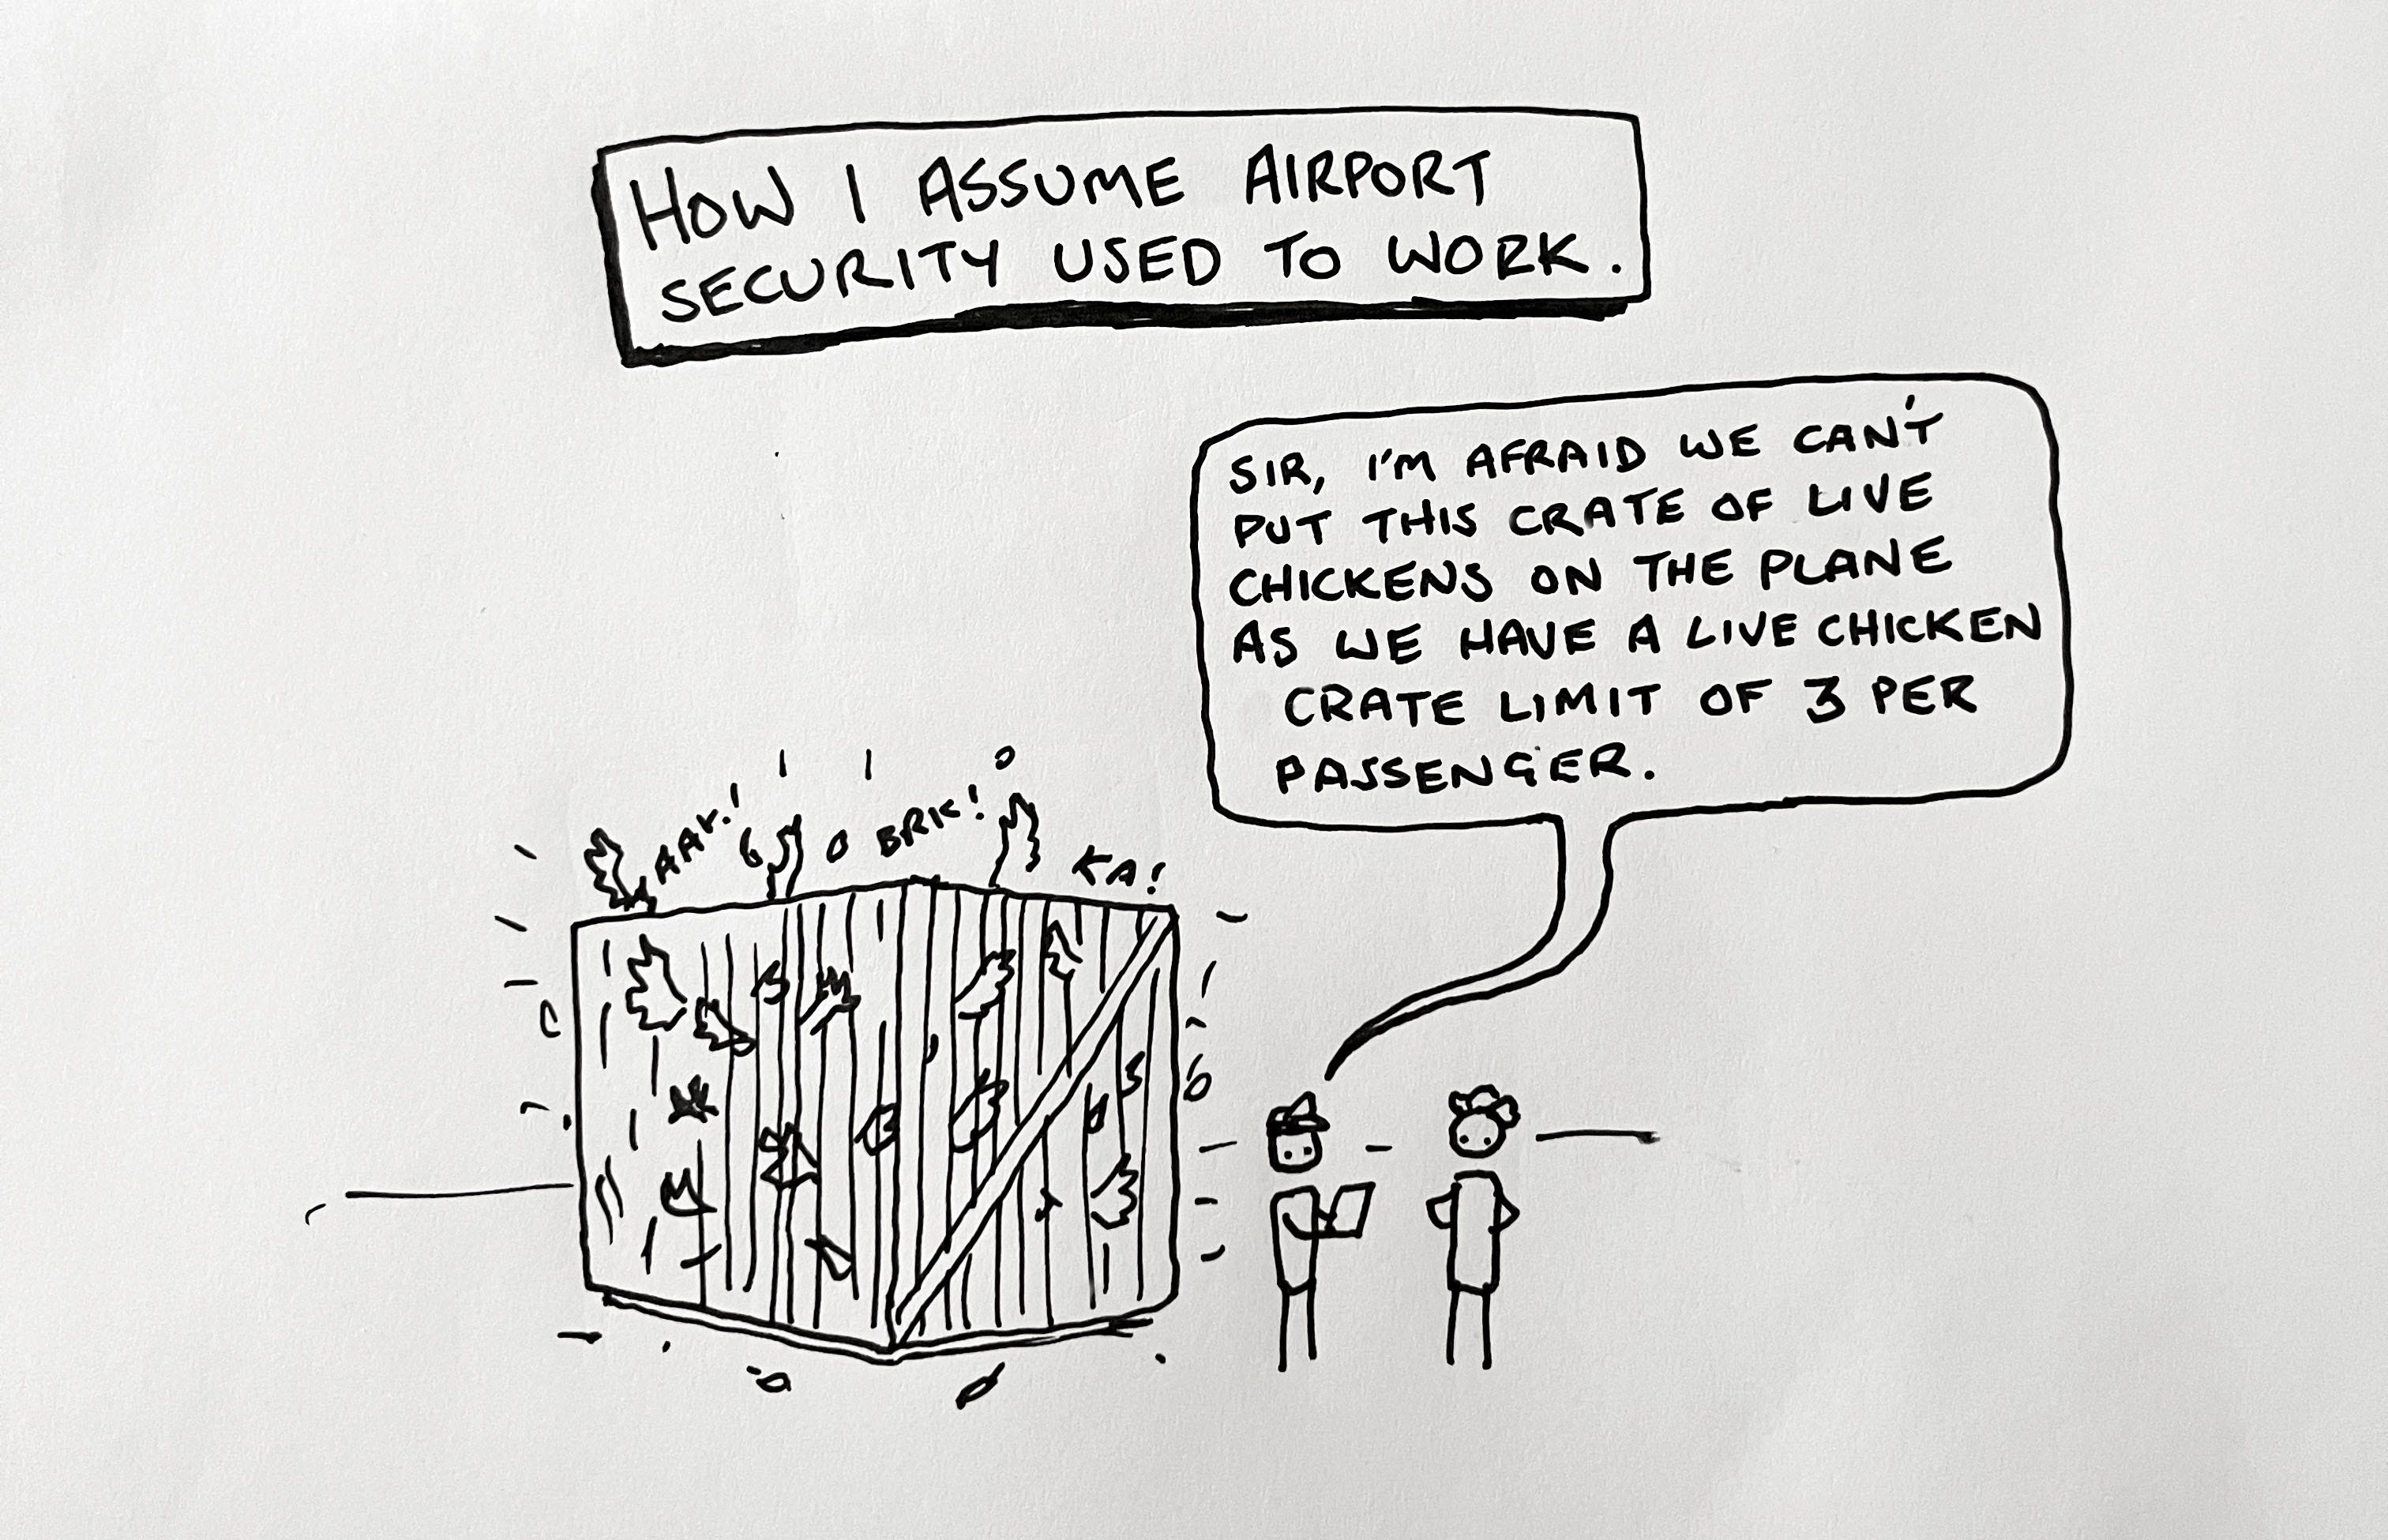 HOW I ASSUME AIRPORT
SECURITY USED TO WORK.
SIR, I'M AFRAID WE CAN'T
PUT THIS CRATE OF LIVE
CHICKENS ON THE PLANE
AS WE HAVE A LIVE CHICKEN
CRATE LIMIT OF 3 PER
PASSENGER.
BRK!
KA!